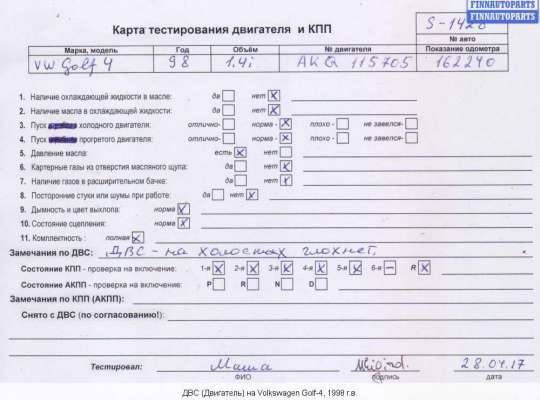 FINNAUTOPARTS
FINNAUTOPARTS
Карта тестирования двигателя и КПП
S-1428
№ авто
Марка, модель Год Объём № двигателя Показание одометра
VW Golf 4 98 1.4i AKQ 115705 162240
1. Наличие охлаждающей жидкости в масле: да нет x
2. Наличие масла в охлаждающей жидкости: да нет x
3. Пуск холодного двигателя: отлично- норма - x плохо - не завелся-
4. Пуск прогретого двигателя: отлично- норма - x плохо - не завелся-
5. Давление масла: есть x нет
6. Картерные газы из отверстия масляного щупа: да нет x
7. Наличие газов в расширительном бачке: да нет x
8. Посторонние стуки или шумы при работе: да нет x
9. Дымность и цвет выхлопа: норма x
10. Состояние сцепления: норма x
11. Комплектность : полная x
Замечания по ДВС: ДВС - на холостых глохнет.
Состояние КПП - проверка на включение: 1-я x 2-я x 3-я x 4-я x 5-я x 6-я – R x
Состояние АКПП - проверка на включение: P R N D
Замечания по КПП (АКПП):
Снято с ДВС (по согласованию!):
Тестировал: Маша 28.04.17
ФИО подпись дата
ДВС (Двигатель) на Volkswagen Golf-4, 1998 г.в.